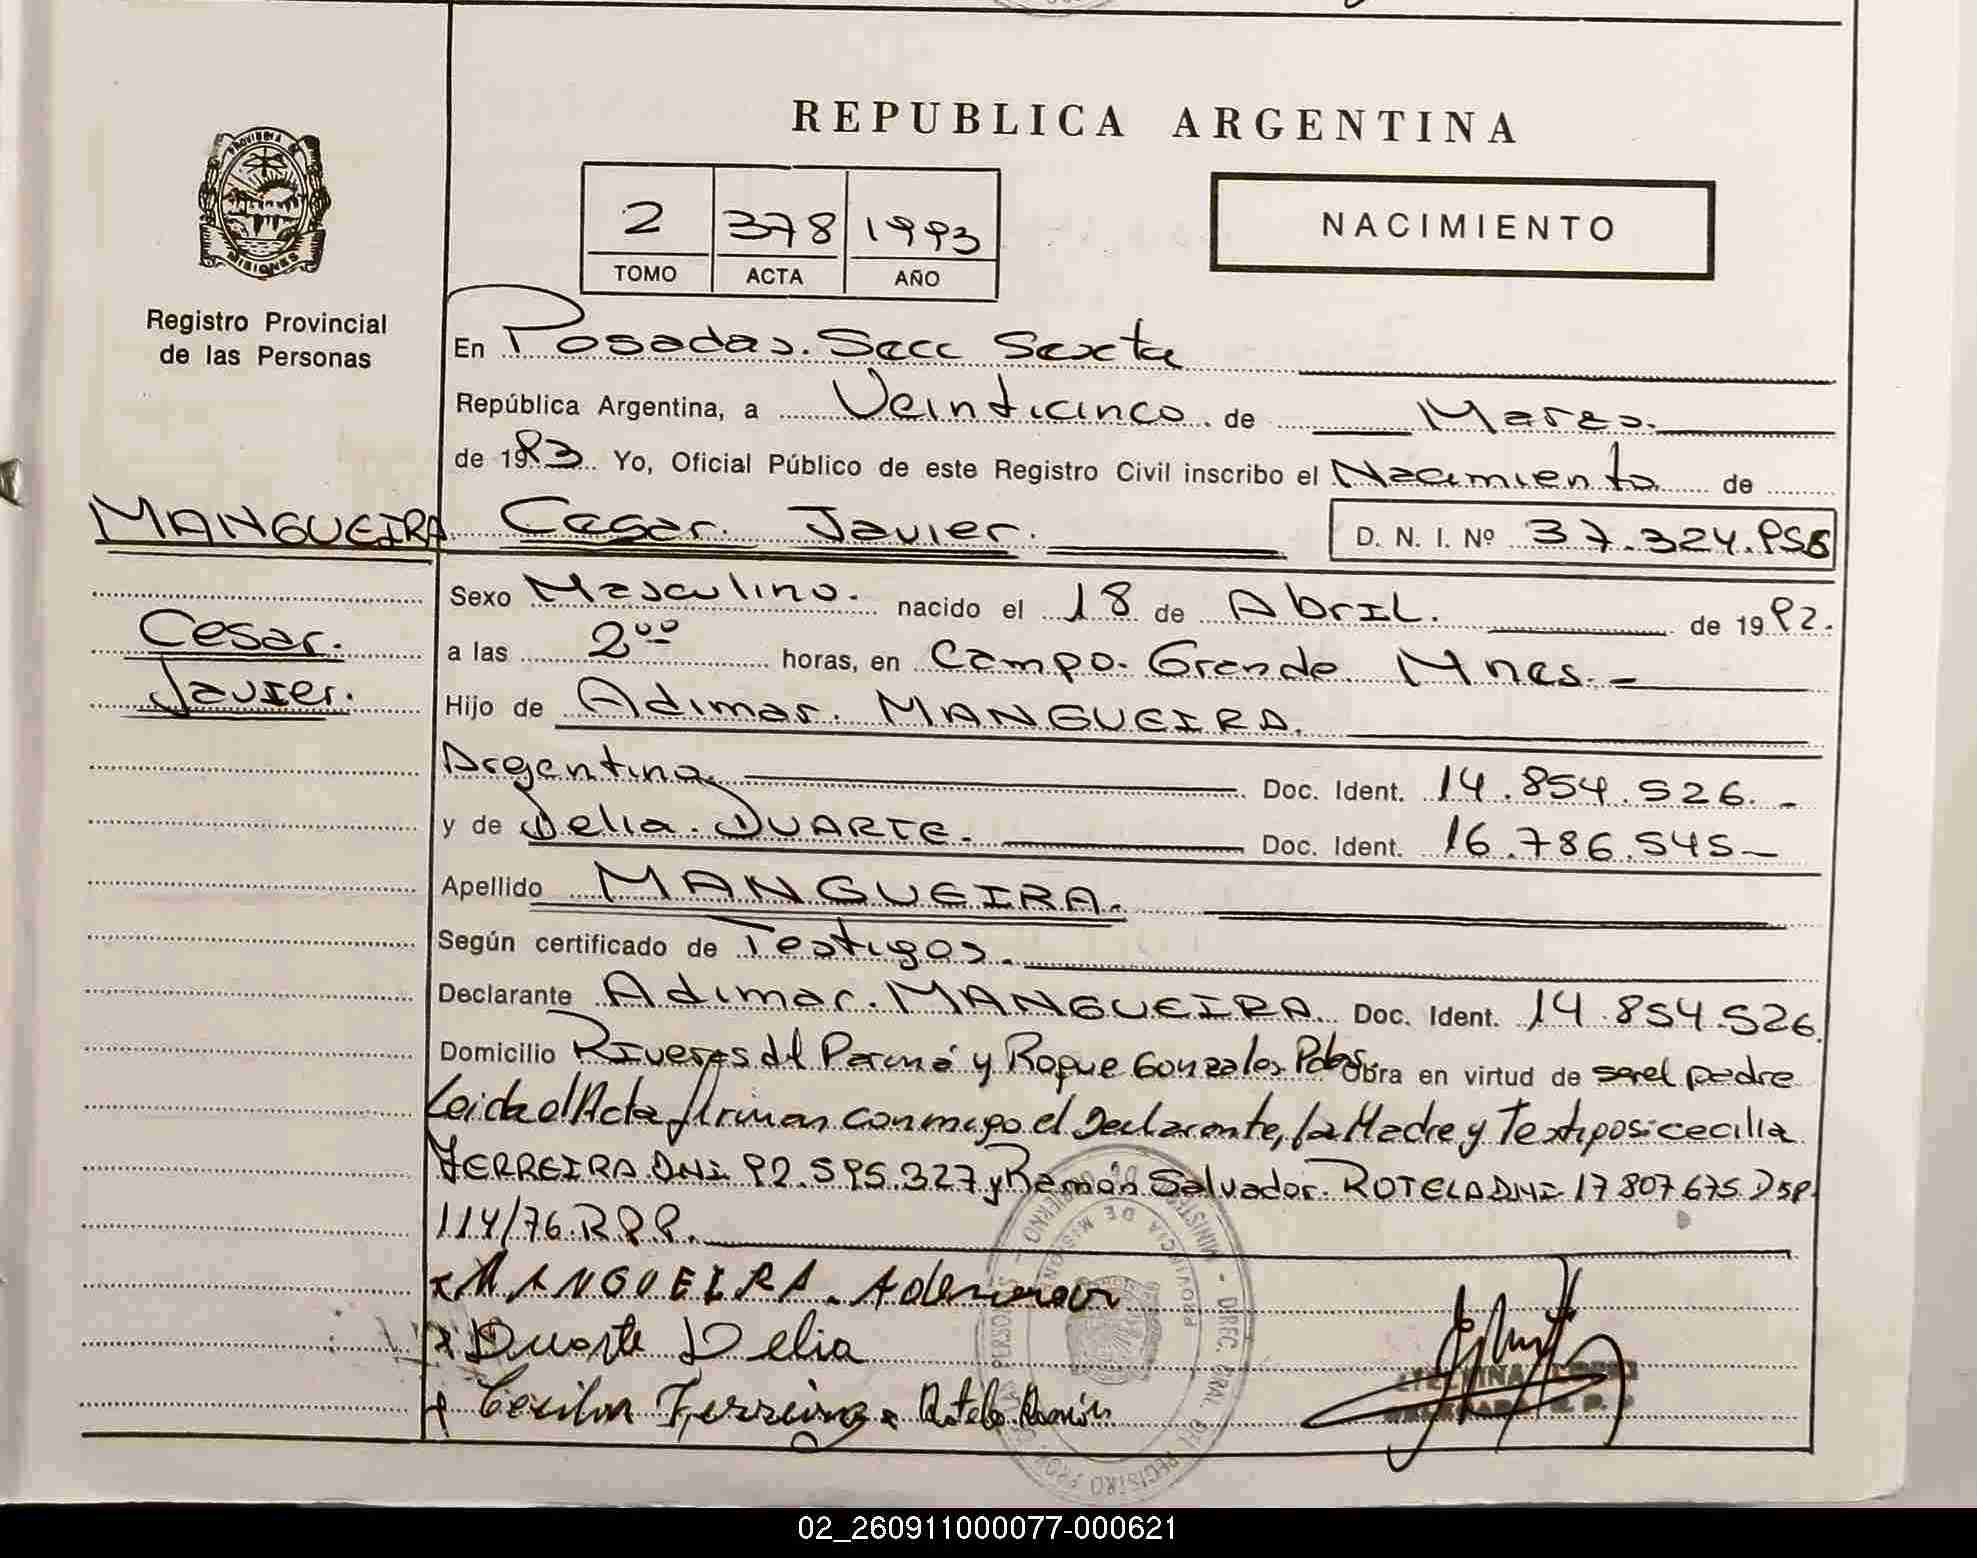 REPUBLICA ARGENTINA
PROVINCIA DE MISIONES
2 378 1993
TOMO ACTA AÑO
NACIMIENTO
Registro Provincial
de las Personas
En Posadas. Secc Sexta
República Argentina, a Veinticinco de Marzo.
de 1993 Yo, Oficial Público de este Registro Civil inscribo el Nacimiento de
MANGUEIRA Cesar. Javier. D. N. I. Nº 37.324.958
Cesar.
Javier.
Sexo Masculino. nacido el 18 de Abril. de 1992.
a las 2⁰⁰ horas, en Campo. Grande Mnes. -
Hijo de Adimar. MANGUEIRA.
Argentina. Doc. Ident. 14.854.526. -
y de Delia. DUARTE. Doc. Ident. 16.786.545-
Apellido MANGUEIRA.
Según certificado de Testigos.
Declarante Adimar. MANGUEIRA. Doc. Ident. 14.854.526.
Domicilio Riveras del Paraná y Roque Gonzales Pdas. Obra en virtud de ser el padre
Leida el Acta firman conmigo el Declarante, la Madre y Testigos: cecilia
FERREIRA DNI. 92.595.327 y Ramón Salvador. ROTELA DNI. 17 807 675. Disp.
114/76.R.P.P.
x MANGUEIRA. Ademar
x Duarte Delia
x Cecilia Ferreira x Rotela Ramón
02_260911000077-000621